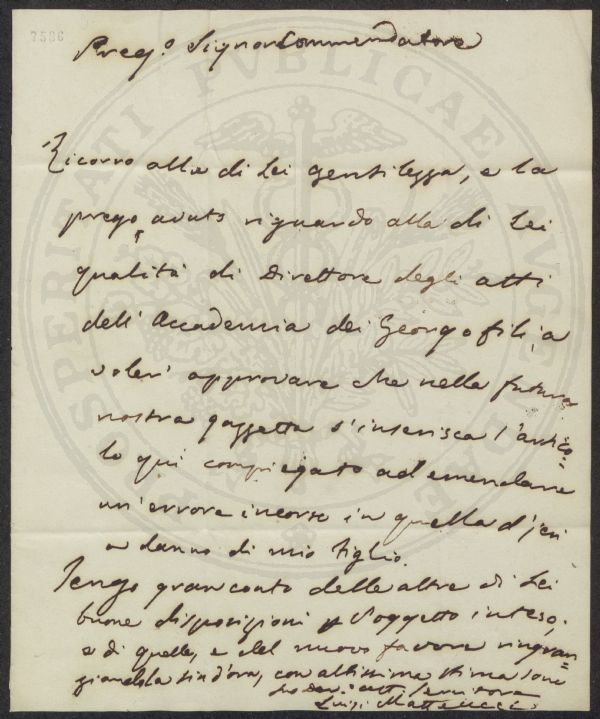 7586
PROSPERITATI PVBLICAE AVGENDAE
Preg.º Signor Commendatore
Ricorro alla di Lei gentilezza, e la
prego, avuto riguardo alla di Lei
qualità di Direttore degli atti
dell'Accademia dei Georgofili, a
voler' approvare che nella futura
nostra gazzetta s'inserisca l'artico=
lo qui compiegato ad emendare
un'errore incorso in quella d'jeri
a danno di mio figlio.
Tengo gran conto delle altre di Lei
buone disposizioni pel soggetto inteso;
e di quelle, e del nuovo favore ringra=
ziandola sin d'ora, con altissima stima sono
suo dev.
Servitore
Luigi Matteucci